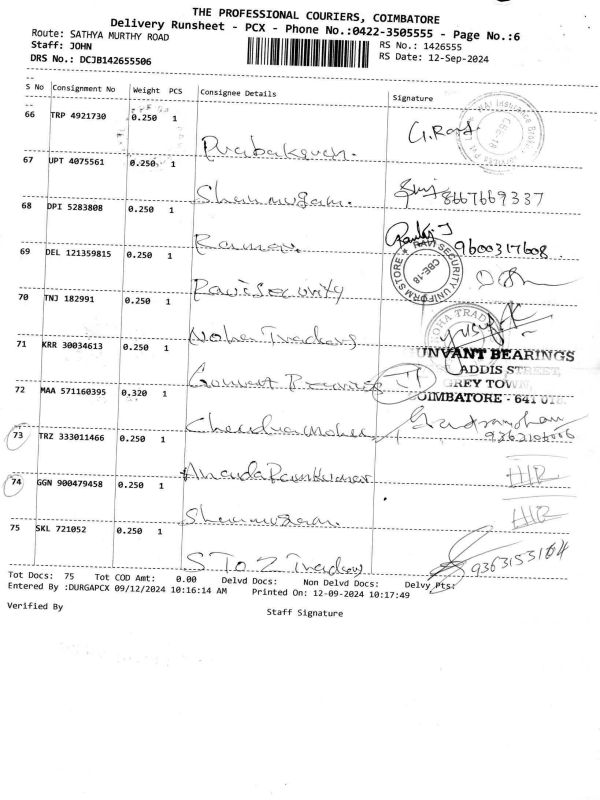 THE PROFESSIONAL COURIERS, COIMBATORE
Delivery Runsheet - PCX - Phone No.:0422-3505555 - Page No.:6
Route: SATHYA MURTHY ROAD RS No.: 1426555
Staff: JOHN RS Date: 12-Sep-2024
DRS No.: DCJB142655506
S No Consignment No Weight PCS Consignee Details Signature
66 TRP 4921730 0.250 1
Prabakaran. G.Ravi
67 UPT 4075561 0.250 1
Shanmugam. 8667669337
68 DPI 5283808 0.250 1
Raman. 9600317608
69 DEL 121359815 0.250 1
RAVI SECURITY UNIFORM STORE CBE-18
Ravi Security
70 TNJ 182991 0.250 1
Noha Traders
71 KRR 30034613 0.250 1
UNVANT BEARINGS
ADDIS STREET,
GREY TOWN,
COIMBATORE - 641 018
72 MAA 571160395 0.320 1
Chandra Mohan
73 TRZ 333011466 0.250 1
Ananda Ramkumar
74 GGN 900479458 0.250 1
Shanmugam.
75 SKL 721052 0.250 1
S To Z Traders 9363153164
Tot Docs: 75 Tot COD Amt: 0.00 Delvd Docs: Non Delvd Docs: Delvy Pts:
Entered By :DURGAPCX 09/12/2024 10:16:14 AM Printed On: 12-09-2024 10:17:49
Verified By Staff Signature